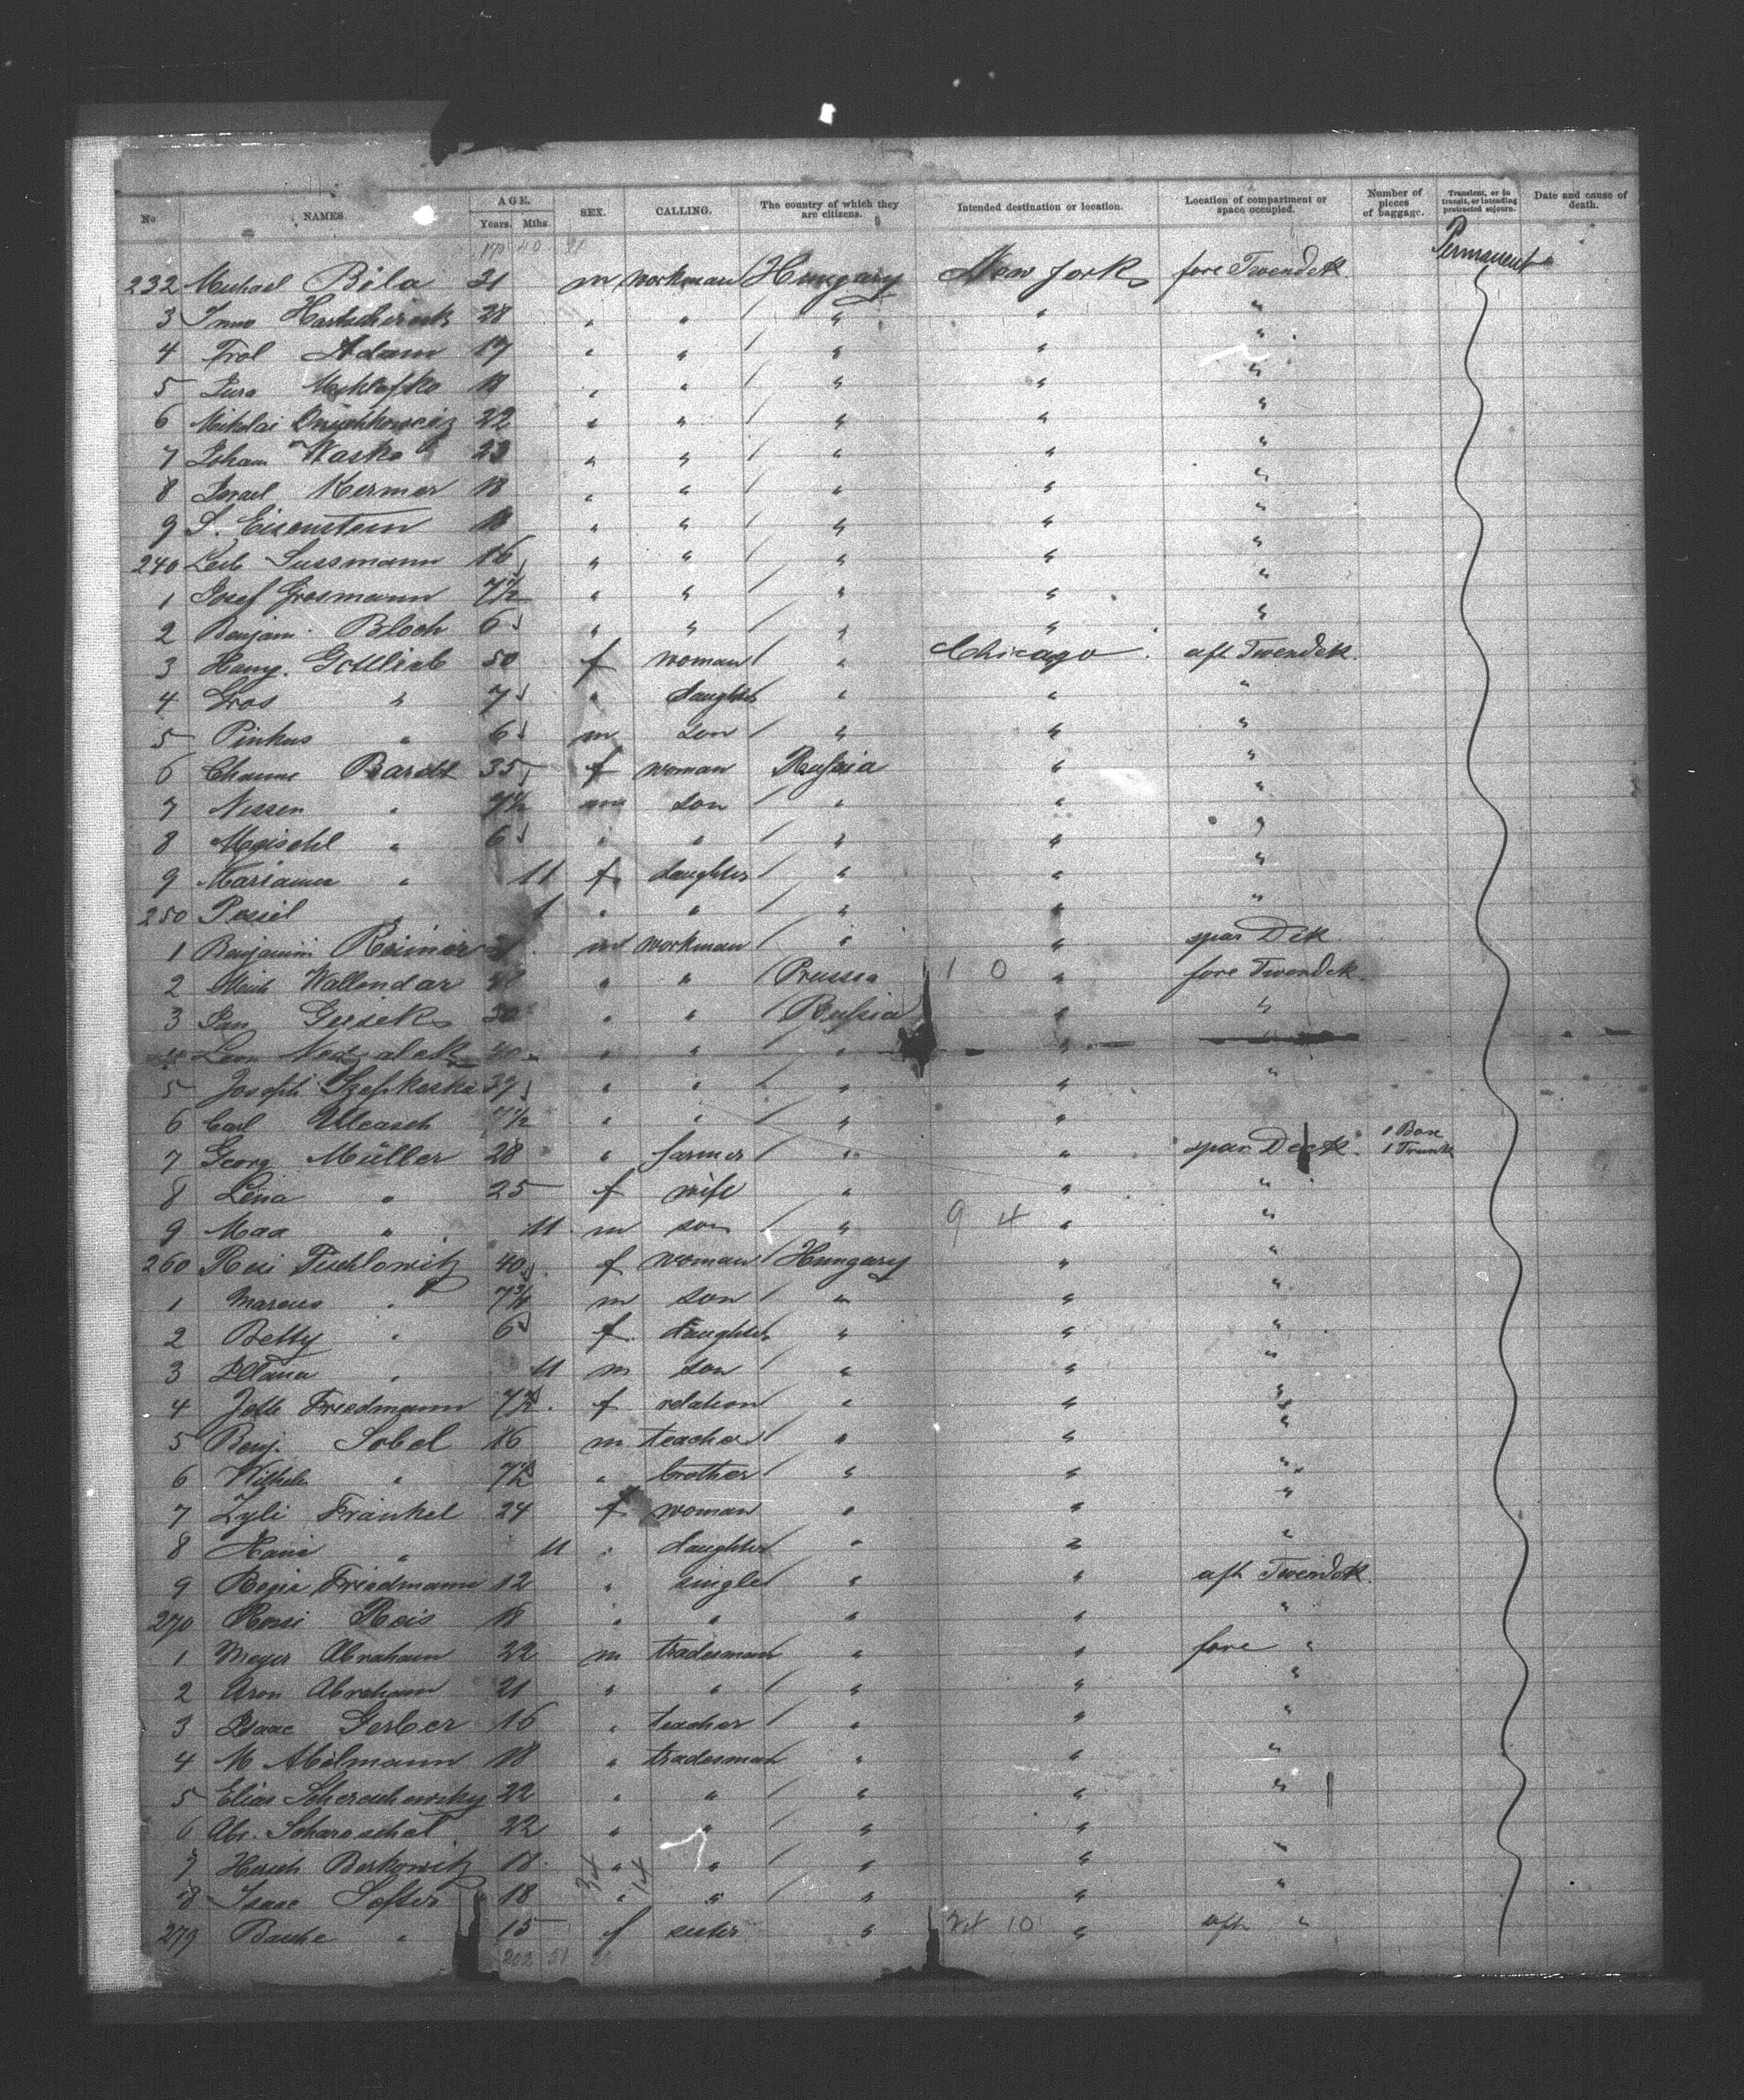 No NAMES. AGE. Years. Mths. SEX. CALLING. The country of which they are citizens. Intended destination or location. Location of compartment or space occupied. Number of pieces of baggage. Transient, or in transit, or intending protracted sojourn. Date and cause of death.
232 Michael Bila 21 m workman Hungary New York fore Twendek Permanent
3 28 " " / " " "
4 Adam 17 " " / " " "
5 18 " " / " " "
6 Mikolai 22 " " / " " "
7 Johann Wasko 23 " " / " " "
8 Israel Kermer 18 " " / " " "
9 S. Eisenstein 18 " " / " " "
240 Leib Sussmann 16 " " / " " "
1 Josef Grosmann 7½ " " / " " "
2 Benjam. Bloch 6 " " / " " "
3 Gottlieb 50 f woman / " Chicago aft Twendek.
4 Gros " 7 " daughter " " "
5 Pinkus " 6 m son / " " "
6 35 f woman Russia " "
7 Nissen " 7½ m son / " " "
8 " 6 " " / " " "
9 Mariam " 11 f daughter / " " "
250 Pesiel " 1 " " / " " "
1 Benjamin Reimer m workman / " " spar Dek
2 Wallendar " " / Prussia 1 0 " fore Twendek.
3 Jan 30 " " / Russia " "
4 Leon 40 " " / " "
5 Joseph 39 " " / " " "
6 Carl 7½ " " / " "
7 Georg Müller 28 " farmer / " " spar Deck. 1 Box 1 Trunk
8 Lena " 25 f wife " " "
9 Max " 11 m son / " 9 4 " "
260 Resi Tischlowitz 40 f woman / Hungary " "
1 Marcus " 7¾ m son / " " "
2 Betty " 6 f daughter " " "
3 " 11 m son / " " "
4 Jette Friedmann 7½ f relation " " "
5 Benj. Sobel 16 m teacher / " " "
6 Wilhelm " 7½ " brother / " " "
7 Zyli Frankel 24 f woman " " "
8 Hani " 11 " daughter " " "
9 Friedmann 12 " single " " aft Twendek.
270 Rosi Reis 18 " " " " "
1 Meyer Abraham 22 m tradesman " " fore "
2 Aron Abraham 21 " " / " " "
3 Isaac Gerber 16 " teacher / " " "
4 M Abelmann 18 " tradesman " " "
5 Elias Scherschewsky 22 " " / " " "
6 Abr. 22 " " / " "
7 Hersch Berkowitz 18 " " / " " "
8 Isaac Softer 18 " " / " " "
279 " 15 f sister " 10 " aft "
202 51